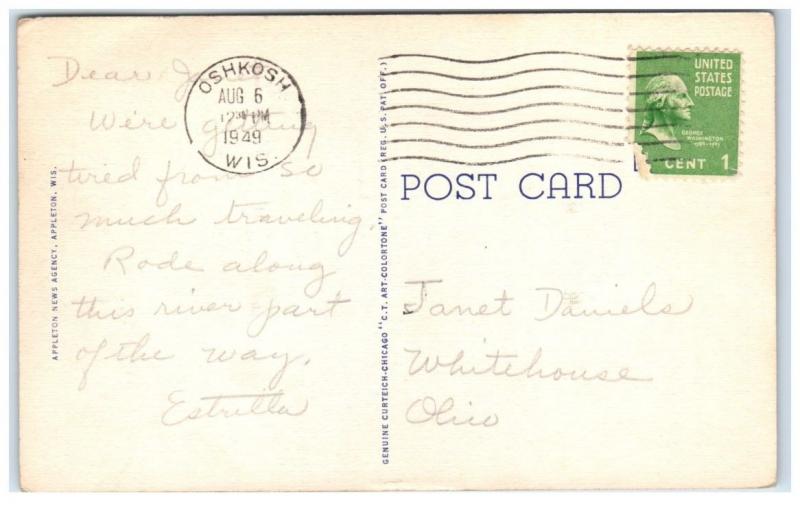 Dear Janet
We're getting
tired from so
much traveling.
Rode along
this river part
of the way.
Estrilla
OSHKOSH
AUG 6
12 PM
1949
WIS.
APPLETON NEWS AGENCY, APPLETON, WIS.
GENUINE CURTEICH-CHICAGO "C.T. ART-COLORTONE" POST CARD (REG. U.S. PAT. OFF.)
UNITED
STATES
POSTAGE
GEORGE
WASHINGTON
CENT 1
POST CARD
Janet Daniels
Whitehouse
Ohio